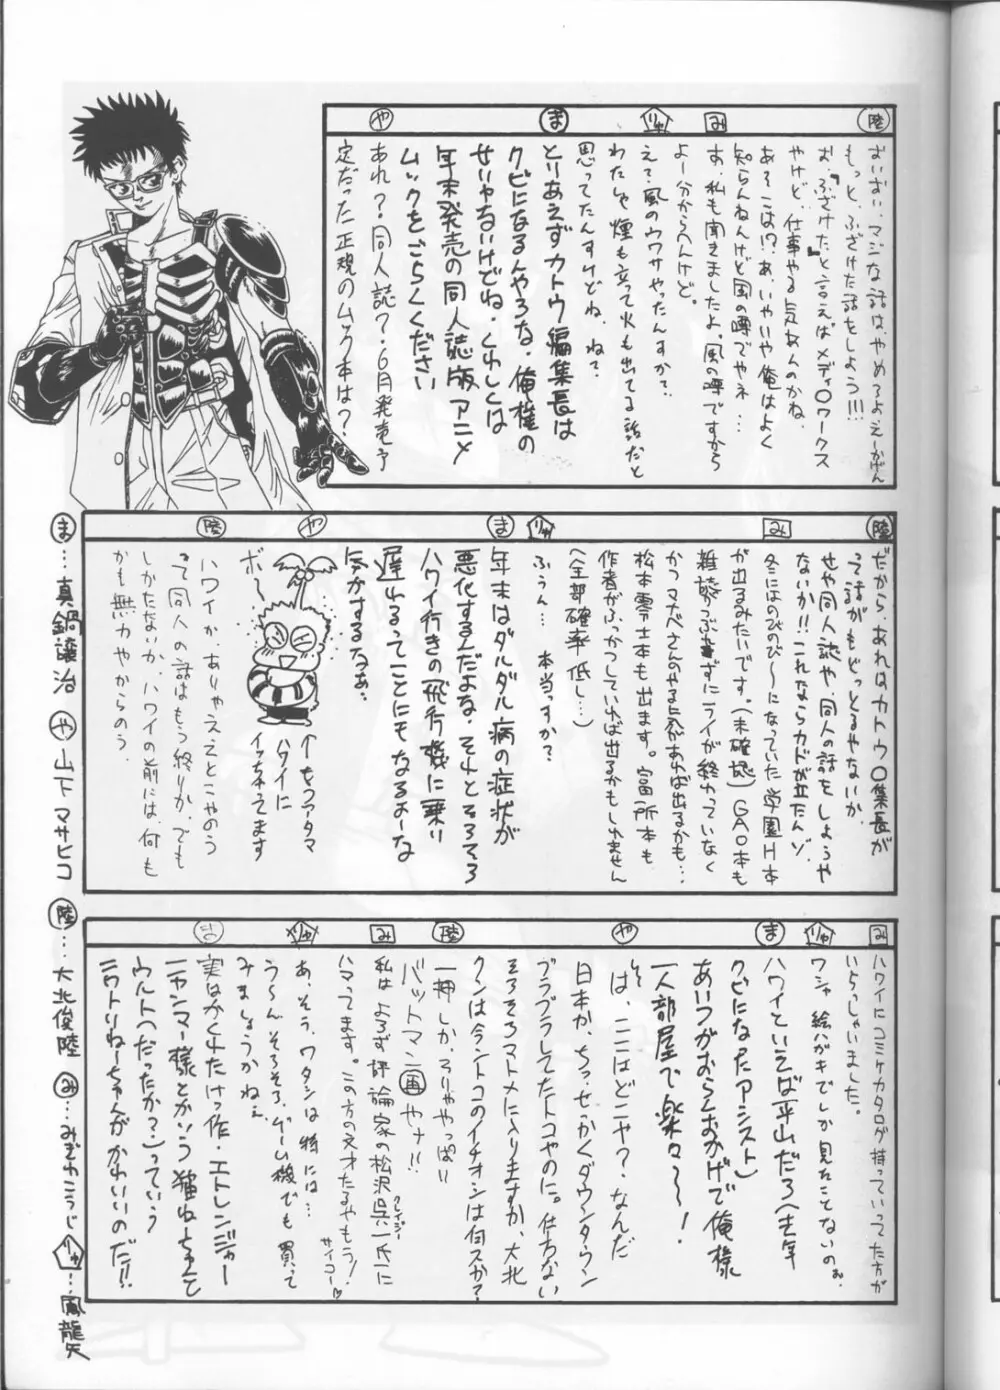 陸
おいおい、マジな話は、やめろよえーかげん
もっと、ふざけた話をしよう!!!
お、『ふざけた』と言えばメディ〇ワークス
やけど、仕事やる気あんのかね、
あそこは!?あ、いやいや俺はよく
知らんねんけど風の噂でやネ…
み
す、私も聞きましたよ。風の噂ですから
よー分からへんけど。
りゅ
え?風のウワサやったんすか?
わたしゃ煙も立って火も出てる話だと
思ってたんすけどね、ねて?
ま
とりあえずカトウ編集長は
クビになるんやろな、俺様の
せいやないけどね。くわしくは
年末発売の同人誌版アニメ
ムックをごらくください
や
あれ?同人誌?6月発売予
定だった正規のムック本は?
陸
だから、あれはカトウ〇集長が
って話がもどっとるやないか、
せや同人誌や、同人の話をしようや
ないか!!これならカドが立たんゾ、
み
冬にはのびのび〜になっていた学園H本
が出るみたいです。(未確認)GAO本も
雑誌がつぶれずにライが終わっていなく
かつマナベさんのやる気があれば出るかも…
松本零士本も出ます。富所本も
作者がふっかつしていれば出るかもしれません
(全部確率低し…)
りゅ
ふぅん…本当っすか?
ま
年末はダルダル病の症状が
悪化するんだよな、それとそろそろ
ハワイ行きの飛行機に乗り
遅れるってことにもなるよーな
気がするなぁ…
や
ボ〜
↑もうアタマ
ハワイに
イッちゃってます
陸
ハワイか、ありゃええとこやのう
って同人の話はもう終りか、でも
しかたないか、ハワイの前には、何も
かも無力やからのう、
み
ハワイにコミケカタログ持っていってた方が
いらっしゃいました。
りゅ
ワシャ絵ハガキでしか見たことないのぉ、
ま
ハワイといえば平山だろ(去年
クビになったアシスト)
あいつがおらんおかげで俺様
一人部屋で楽々〜!
や
は、ここはどこヤ?なんだ
日本か、ちっ、せっかくダウンタウン
ブラブラしてたトコやのに。仕方ない
そろそろマトメに入りますか、大北
クンは今、ントコのイチオシは何スか?
陸
一押しか、そりゃやっぱり
バットマン画やナ!!
み
私はよろず評論家の松沢呉一氏に
クレイジー
ハマってます。この方の文才たるやもう!
サイコー♡
りゅ
あ、そう、ワタシは特には…
うーん、そろそろ、ゲーム機でも買って
みましょうかねぇ
ま
実はかくれたけっ作・エトレンジャー
ニャンマー様とかいう猫ねーちゃんて
ウルト(だったか?)っていう
ニワトリねーちゃんがかわいいのだ!!
ま…真鍋譲治 や山下マサヒコ 陸…大北俊陸 み…みぞわこうじ りゅ…鳳龍矢